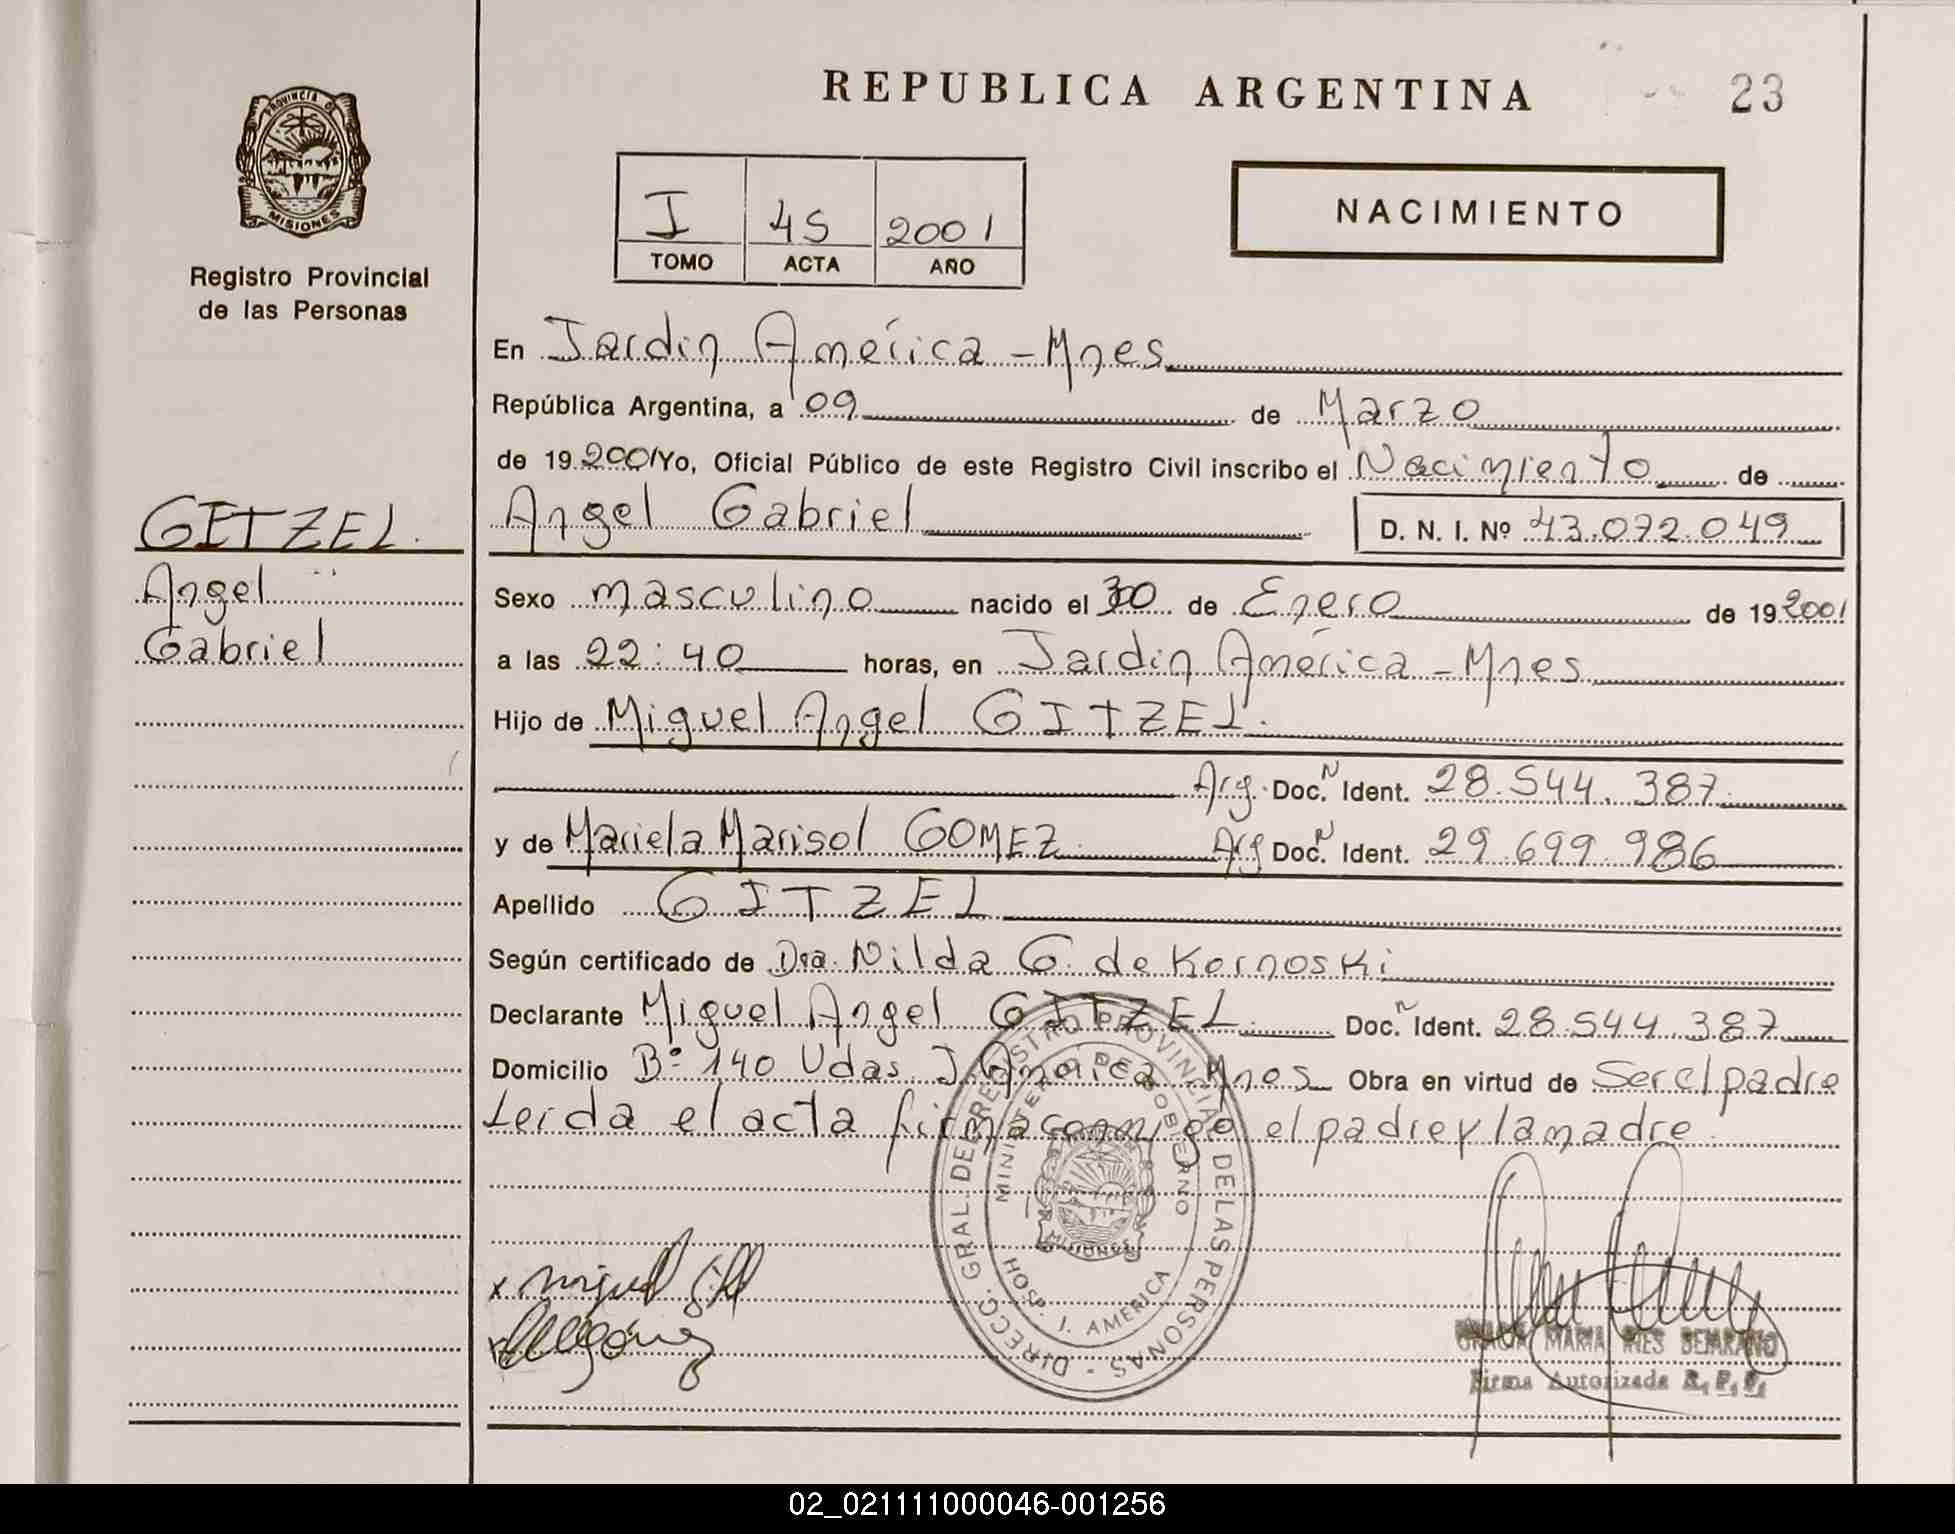 REPUBLICA ARGENTINA
23
PROVINCIA DE
MISIONES
Registro Provincial
de las Personas
I 45 2001
TOMO ACTA AÑO
NACIMIENTO
En Jardin América - Mnes
República Argentina, a 09 de Marzo
de 19 2001 Yo, Oficial Público de este Registro Civil inscribo el Nacimiento de
Angel Gabriel D. N. I. Nº 43.072.049
GITZEL.
Angel
Gabriel
Sexo masculino nacido el 30 de Enero de 19 2001
a las 22:40 horas, en Jardin América - Mnes
Hijo de Miguel Angel GITZEL.
Arg. Doc. N Ident. 28.544.387
y de Mariela Marisol GOMEZ Arg Doc. N Ident. 29.699.986
Apellido GITZEL
Según certificado de Dra. Nilda G. de Kornoski
Declarante Miguel Angel GITZEL Doc. N Ident. 28.544.387
Domicilio Bº 140 Vdas J. América Mnes Obra en virtud de Ser el padre
Leida el acta firma conmigo el padre y la madre.
DIRECC. GRAL DE REGISTRO PROVINCIAL DE LAS PERSONAS -
MINISTERIO DE GOBIERNO
MISIONES
HOSP. J. AMERICA
x Miguel
MARIA INES
Firma Autorizada R. P. P.
02_021111000046-001256